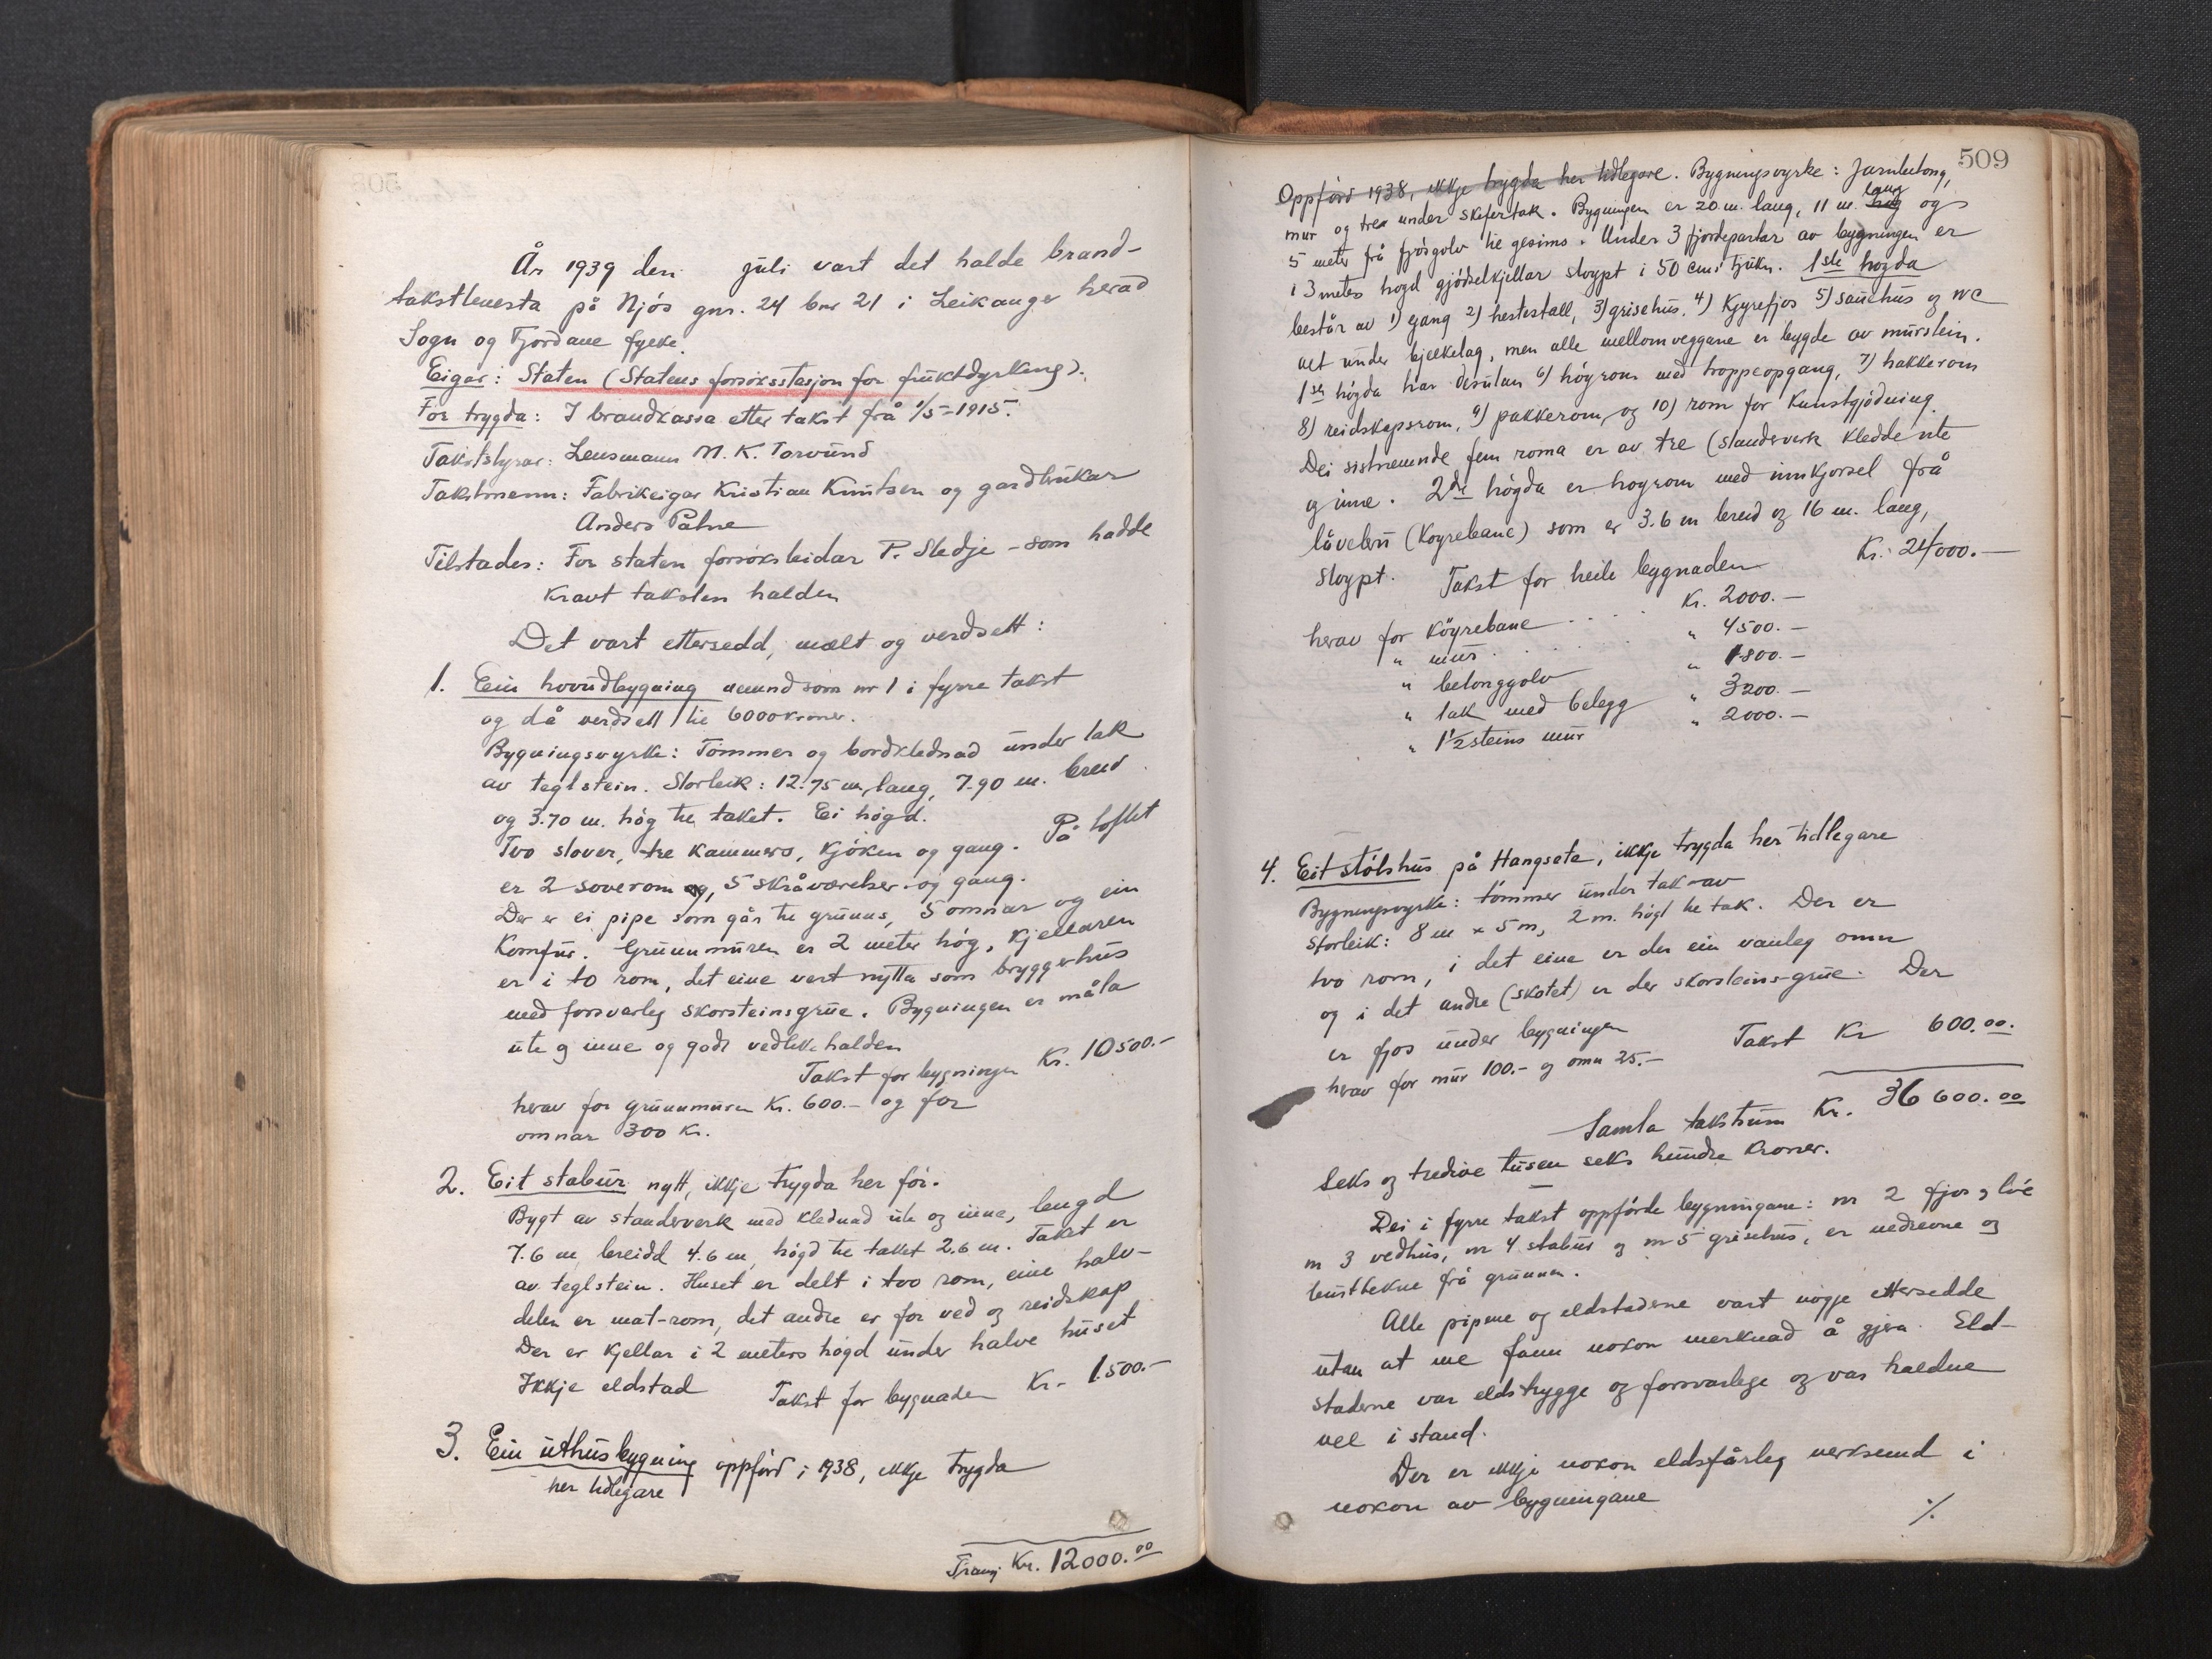 År 1939 den juli vart det halde brand-
takstlenesta på Njøs gnr. 24 bnr 21 i Leikanger herad
Sogn og Fjordane fylke.
Eigar: Staten (Statens forsøksstasjon for fruktdyrking).
Før trygda: I brandkassa etter takst frå 1/5-1915.
Takststyrar: Lensmann M. K. Torvund
Takstmenn: Fabrikeigar Kristian Knutsen og gardbrukar
Anders Påhne
Tilstades: For staten forsøksleidar P. Stedje - som hadde
kravt taksten halden
Det vart ettersedd, mælt og verdsett:
1. Ein hovudbygning nemnd som nr 1 i fyrre takst
og då verdsett til 6000 kroner.
Bygningsvyrke: Tømmer og bordklednad under tak
av teglstein. Storleik: 12.75 m. lang, 7.90 m. breid
og 3.70 m. høg til taket. Ei høgd.
Tvo stover, tre kammers, kjøken og gang. På loftet
er 2 soverom og, 5 skråværelser og gang.
Der er ei pipe som går til grunns, 5 omnar og ein
Komfur. Grunnmuren er 2 meter høg, kjellaren
er i to rom, det eine vert nytta som bryggerhus
med forsvarleg skorsteinsgrue. Bygningen er måla
ute og inne og godt vedlikehalden
Takst for bygningen Kr. 10500.-
herav for grunnmuren Kr. 600.- og for
omnar 300 Kr.
2. Eit stabur nytt, ikkje trygda her før.
Bygt av standerverk med klednad ute og inne, lengd
7.6 m, breidd 4.6 m, høgd til taket 2.6 m. Taket er
av teglstein. Huset er delt i tvo rom, eine halv-
delen er mat-rom, det andre er for ved og reidskap
Der er Kjellar i 2 meters høgd under halve huset
Ikkje eldstad Takst for bygnaden Kr. 1.500.-
3. Ein uthusbygning oppførd i 1938, ikkje trygda
her tidlegare
Transp. Kr. 12000.00
509
Oppførd 1938, ikkje trygda her tidlegare. Bygningsvyrke: Jarnbetong,
mur og tre under skifertak. Bygningen er 20 m. lang, 11 m. høg lang og
5 meter frå fjøsgolv til gesims. Under 3 fjordepartar av bygningen er
i 3 meters høgd gjødselkjellar støypt i 50 cms tjukn. 1ste høgda
består av 1) gang 2) hestestall, 3) grisehus. 4) Kyrefjøs 5) sauehus og WC
alt under bjelkelag, men alle mellomveggane er bygde av murstein.
1ste høgda har desutan 6) høyrom med trappeopgang, 7) hakkerom
8) reidskapsrom, 9) pakkerom, og 10) rom for Kunstgjødning.
Dei sistnemnde fem roma er av tre (standerverk kledde ute
og inne. 2dre høgda er høyrom med innkjørsel frå
låvebru (Køyrebane) som er 3.6 m breid og 16 m. lang,
støypt. Takst for heile bygnaden Kr. 24000.-
herav for Køyrebane . . . Kr. 2000.-
" mur . . . " 4500.-
" betonggolv " 1800.-
" tak med belegg " 3200.-
" 1½ steins mur " 2000.-
4. Eit stølshus på Hangsete, ikkje trygda her tidlegare
Bygningsvyrke: tømmer under tak av
Storleik: 8 m x 5 m, 2 m. høgd til tak. Der er
tvo rom, i det eine er der ein vanleg omn
og i det andre (skotet) er der skorsteins-grue. Der
er fjøs under bygningen Takst Kr 600.00.
herav for mur 100.- og omn 25.-
Samla takstsum Kr. 36600.00
Seks og tredive tusen seks hundre Kroner.
Dei i fyrre takst oppførde bygningane: nr 2 fjøs og løe
nr 3 vedhus, nr 4 stabur og nr 5 grisehus, er nedrevne og
burttekne frå grunnen.
Alle pipene og eldstaderne vart nøgje ettersedde
utan at me fann nokon merknad å gjera. Eld-
staderne var eldstrygge og forsvarlege og var haldne
vel i stand.
Der er ikkje nokon eldsfårleg verksemd i
nokon av bygningane
./.